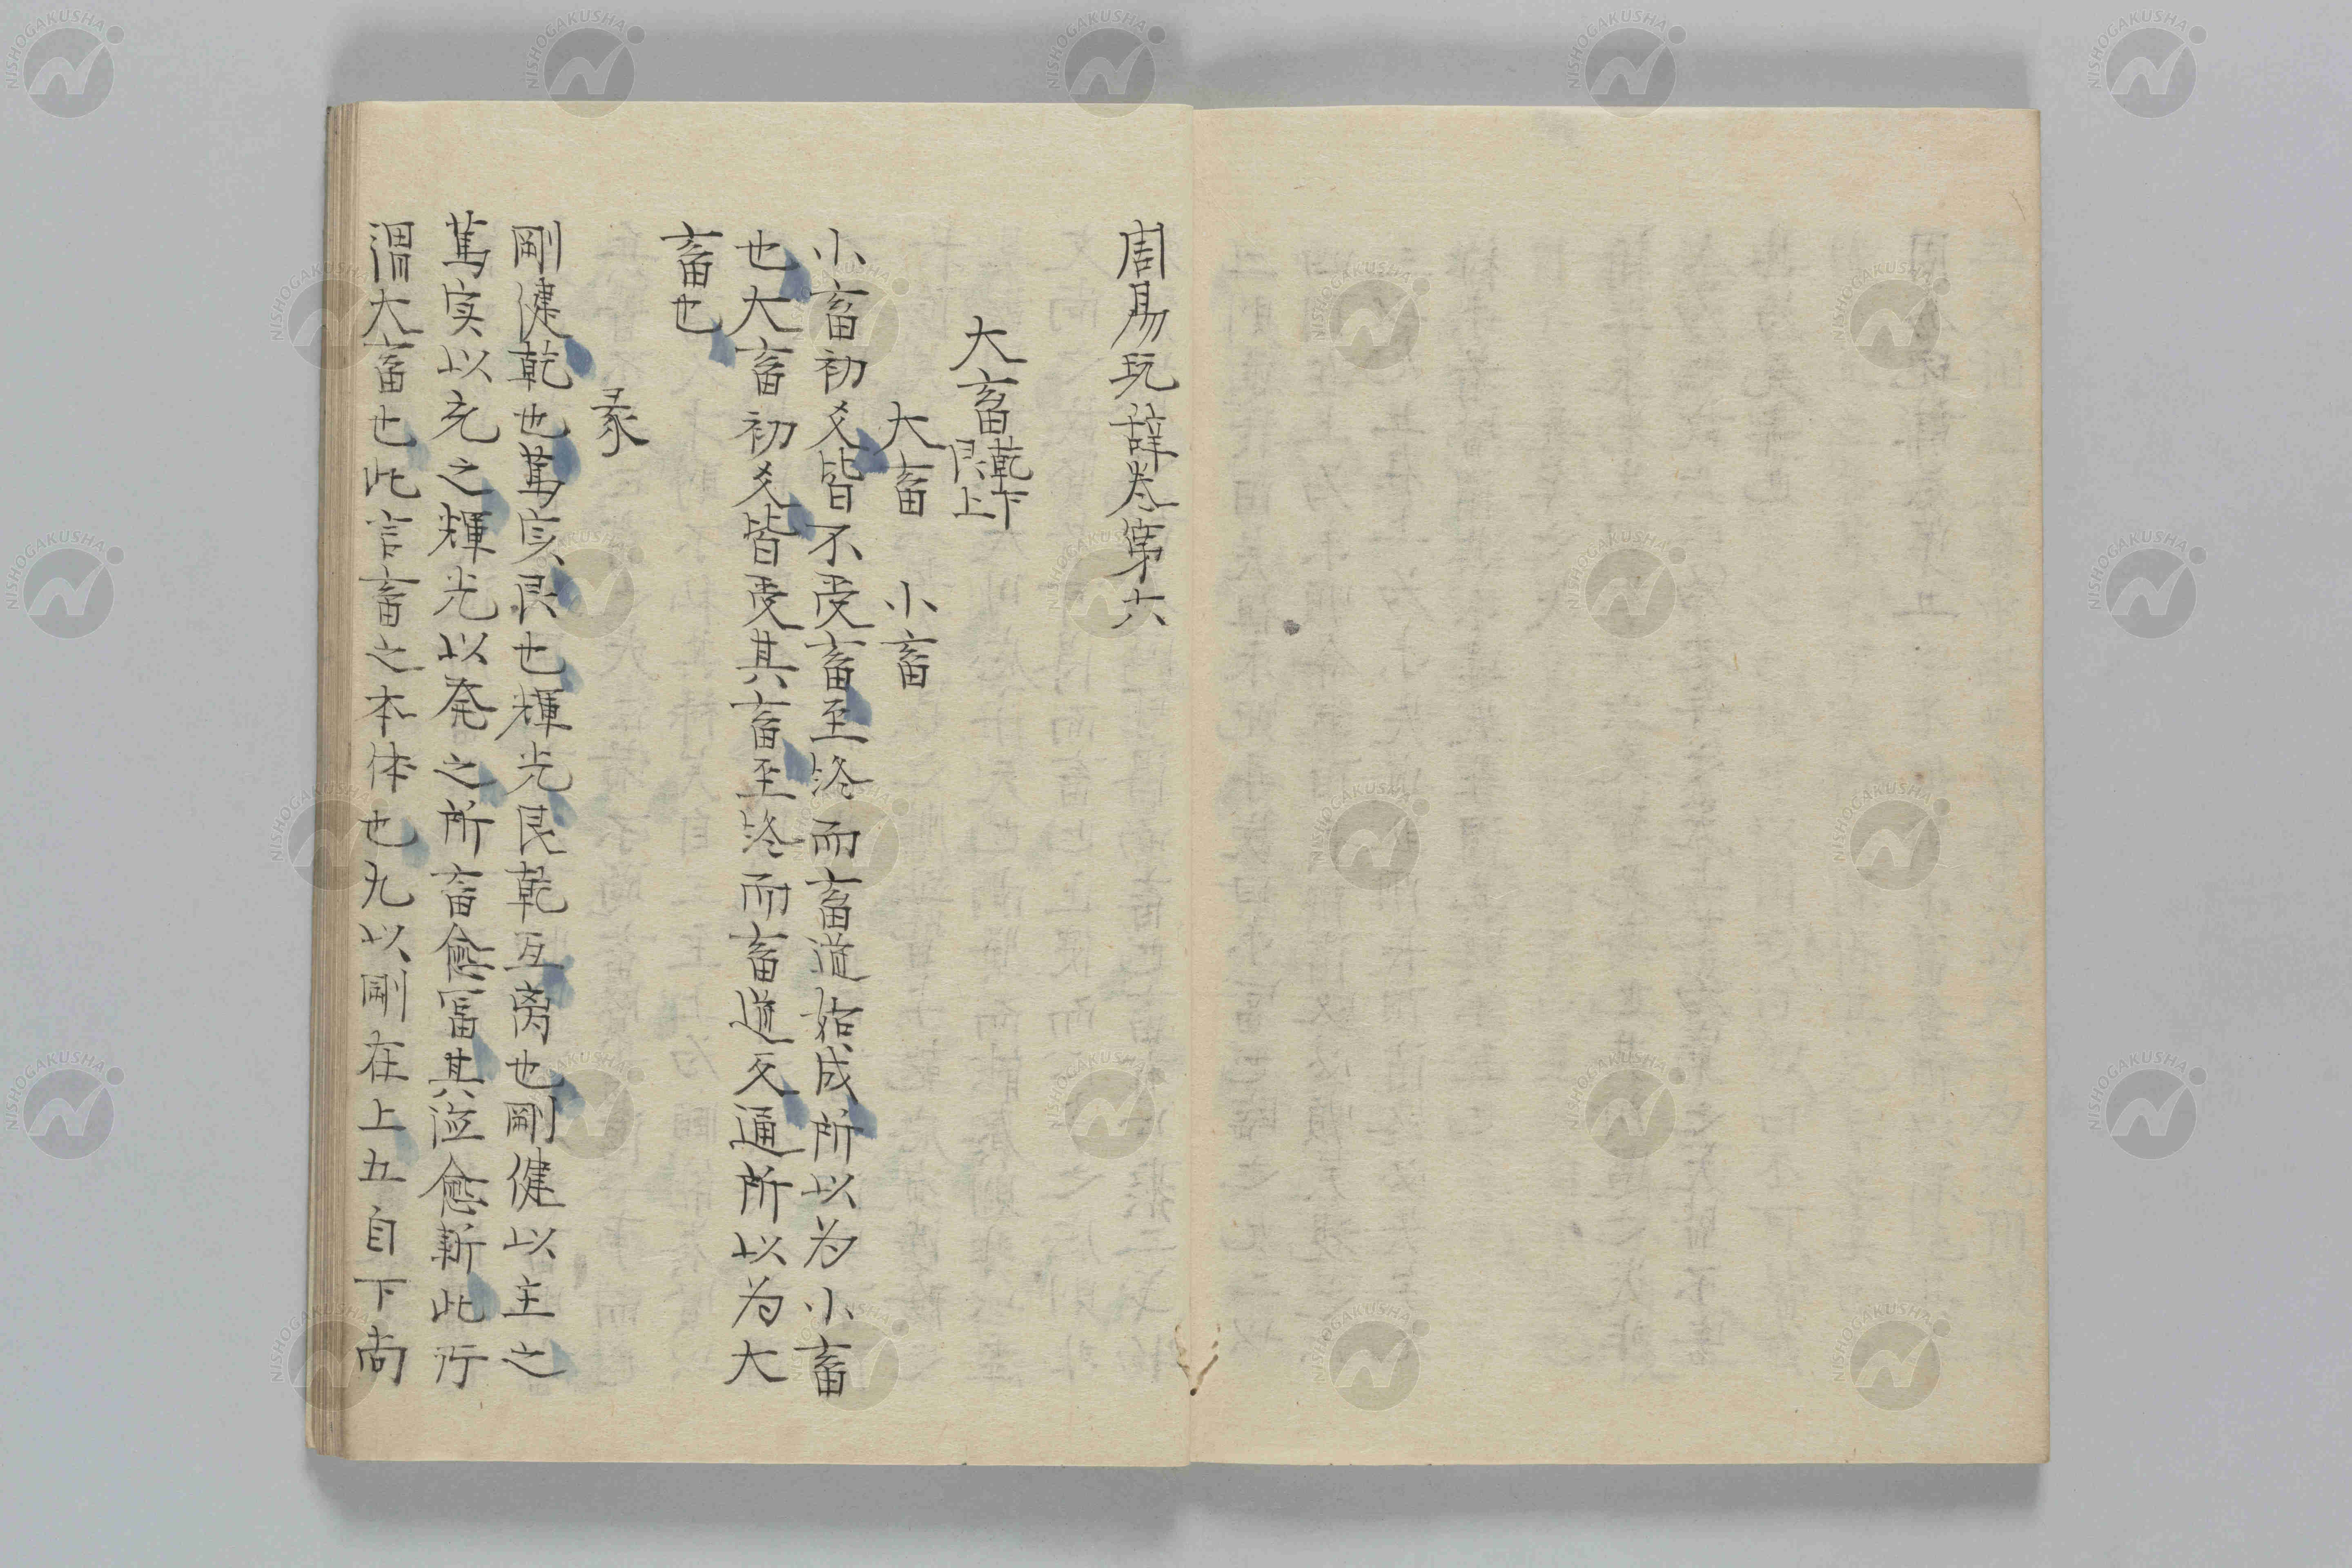 周易玩辞卷第六
大畜乾下艮上
大畜　小畜
小畜初爻皆不受畜至終而畜道始成所以为小畜
也大畜初爻皆受其畜至終而畜道文通所以为大
畜也
彖
剛健乾也篤实艮也輝光艮乾互离也剛健以主之
篤实以充之輝光以発之所畜愈富其涖愈新此所
謂大畜也此言畜之本体也九以剛在上五自下尚
NISHOGAKUSHA